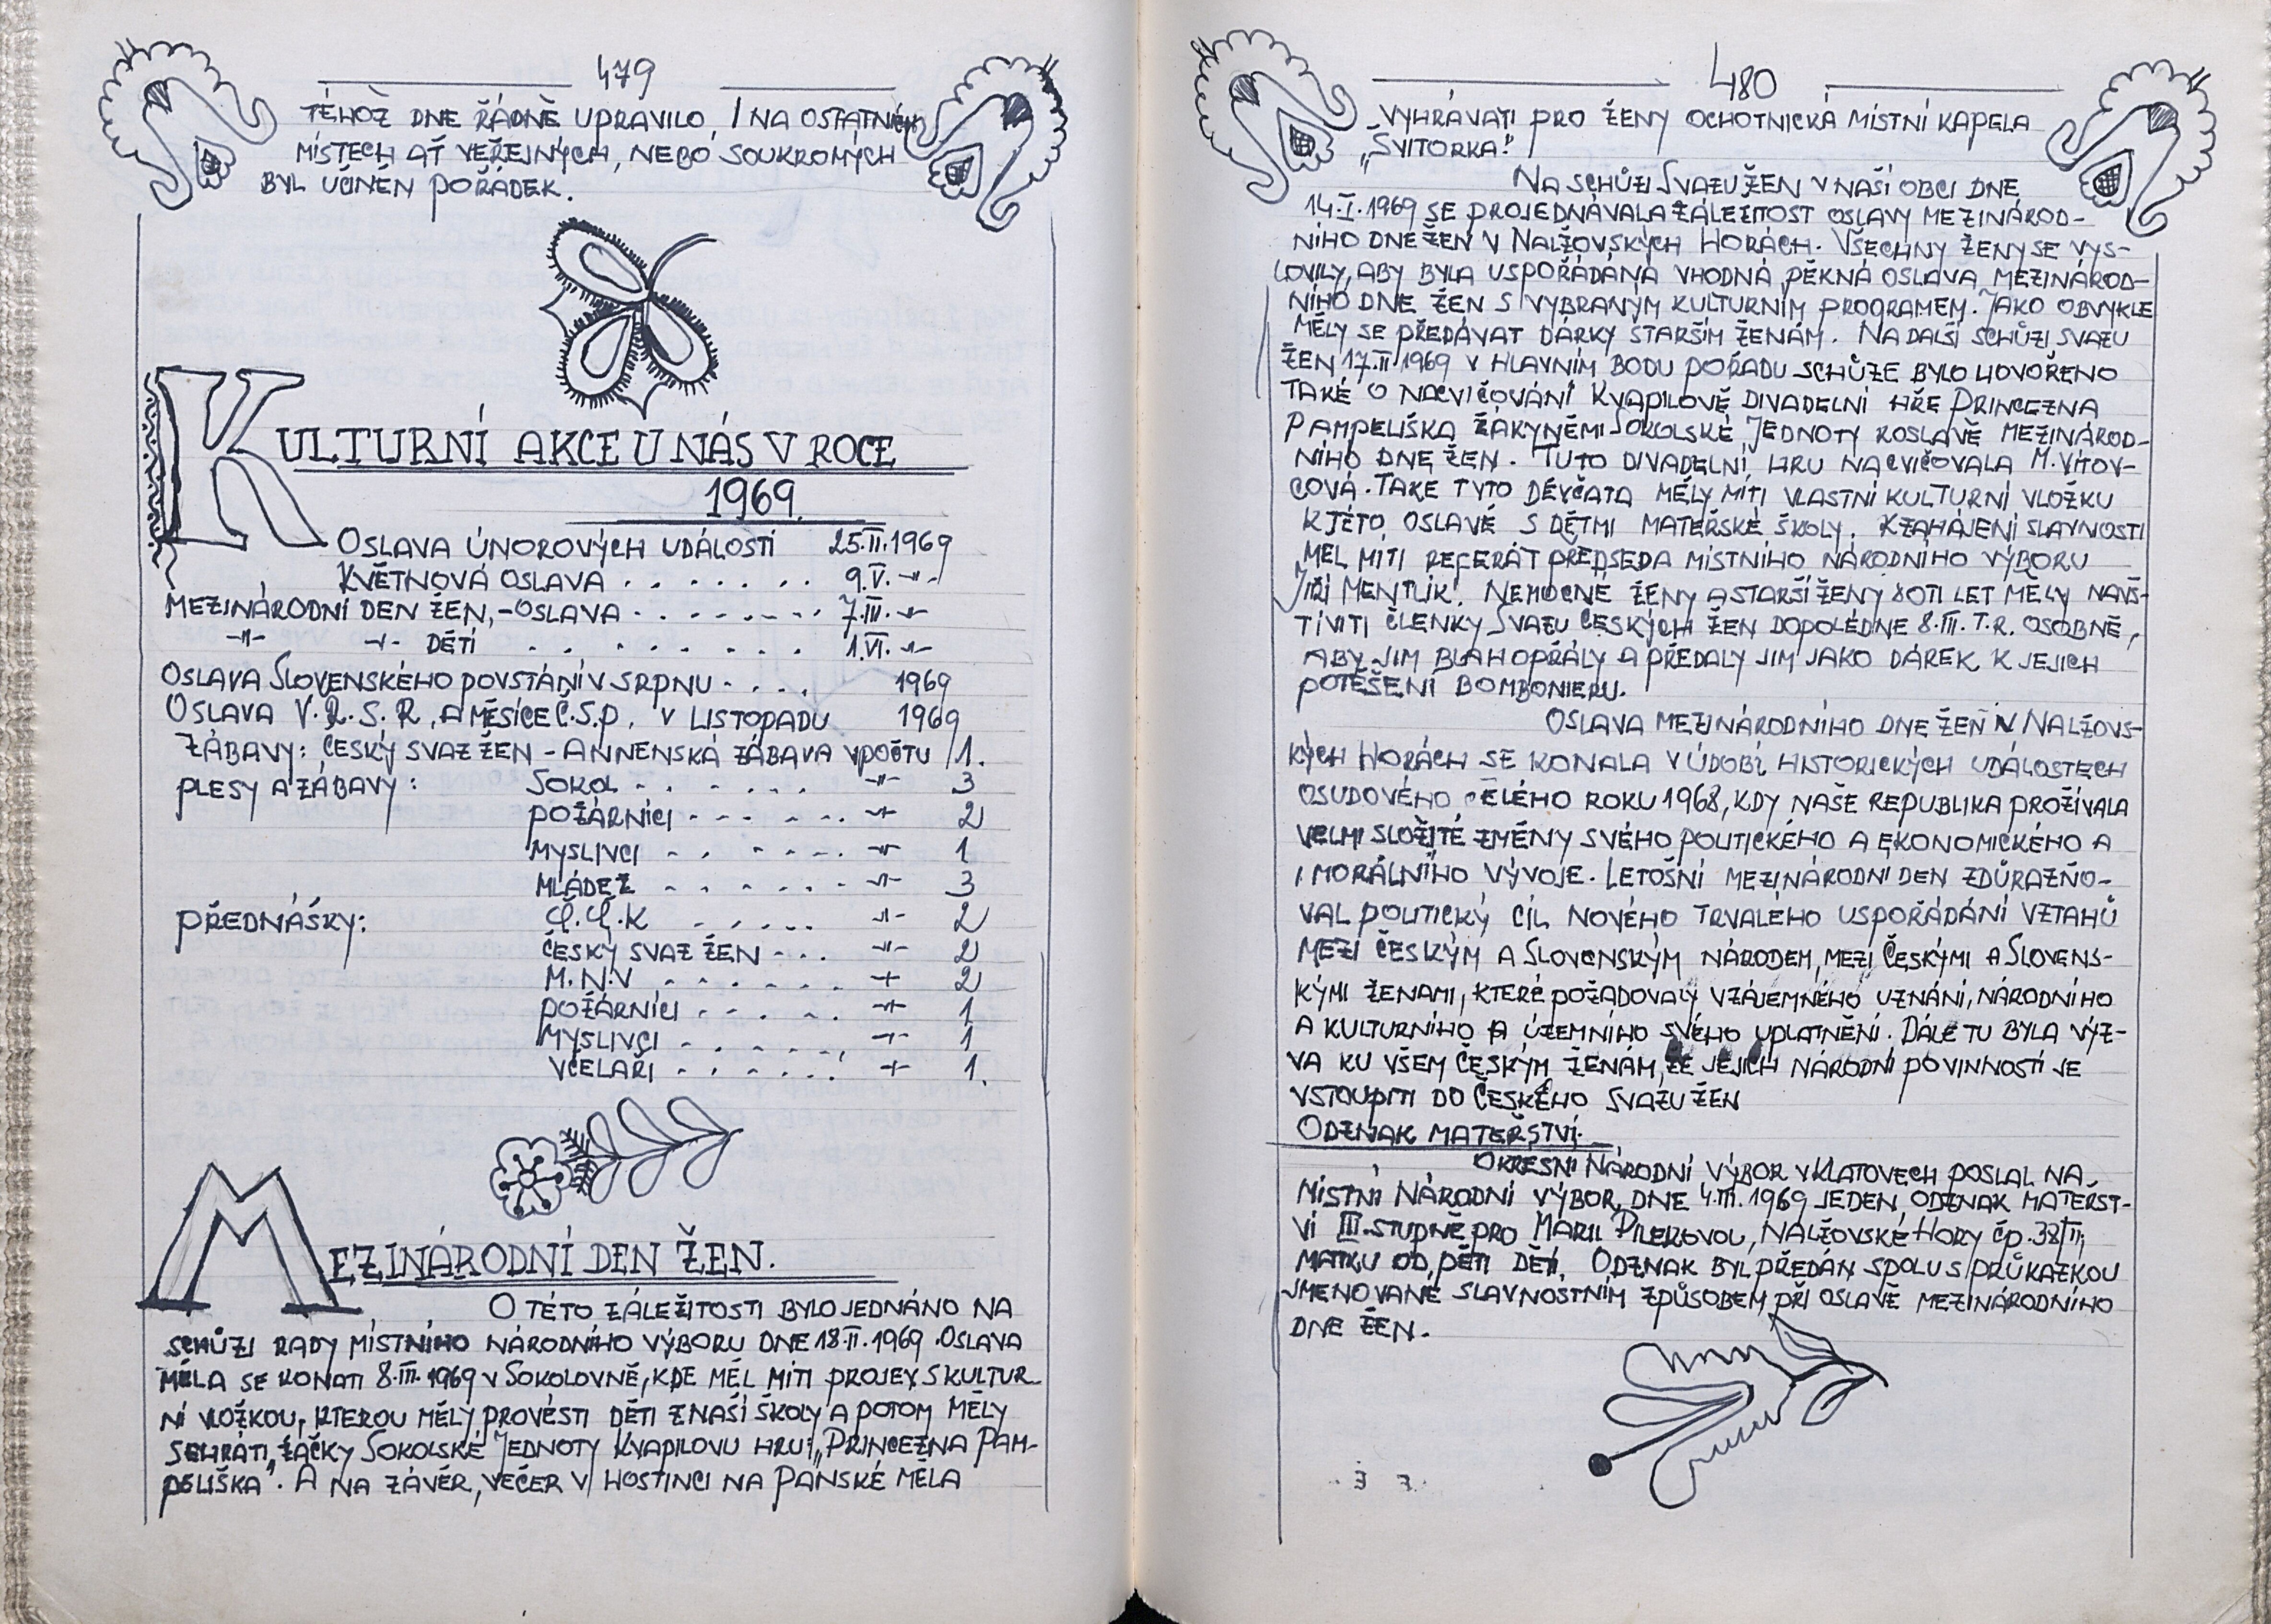 479
TÉHOŽ DNE ŘÁDNĚ UPRAVILO. I NA OSTATNÍCH
MÍSTECH AŤ VEŘEJNÝCH, NEBO SOUKROMÝCH
BYL UČINĚN POŘÁDEK.
KULTURNÍ AKCE U NÁS V ROCE
1969.
OSLAVA ÚNOROVÝCH UDÁLOSTÍ 25.II.1969
KVĚTNOVÁ OSLAVA . . . . . . . 9.V. -"-
MEZINÁRODNÍ DEN ŽEN,-OSLAVA . . . . . . . 7.III. -"-
-"- -"- DĚTÍ . . . . . . . . 1.VI. -"-
OSLAVA SLOVENSKÉHO POVSTÁNÍ V SRPNU . . . . 1969
OSLAVA V.Ř.S.R, A MĚSÍCE Č.S.P. V LISTOPADU 1969
ZÁBAVY: ČESKÝ SVAZ ŽEN - ANNENSKÁ ZÁBAVA V POČTU 1.
PLESY A ZÁBAVY: SOKOL . . . . . . -"- 3
POŽÁRNÍCI . . . . . . . -"- 2
MYSLIVCI . . . . . . -"- 1
MLÁDEŽ . . . . . . -"- 3
PŘEDNÁŠKY: Č.Č.K . . . . . -"- 2
ČESKÝ SVAZ ŽEN . . . -"- 2
M.N.V . . . . . . . -"- 2
POŽÁRNÍCI . . . . . -"- 1
MYSLIVCI . . . . . . -"- 1
VČELAŘI . . . . . . -"- 1.
MEZINÁRODNÍ DEN ŽEN.
O TÉTO ZÁLEŽITOSTI BYLO JEDNÁNO NA
SCHŮZI RADY MÍSTNÍHO NÁRODNÍHO VÝBORU DNE 18.II.1969. OSLAVA
MĚLA SE KONATI 8.III.1969 V SOKOLOVNĚ, KDE MĚL MÍTI PROJEV S KULTUR-
NÍ VLOŽKOU, KTEROU MĚLY PROVÉSTI DĚTI Z NAŠÍ ŠKOLY A POTOM MĚLY
SEHRÁTI, ŽAČKY SOKOLSKÉ JEDNOTY KVAPILOVU HRU: „PRINCEZNA PAM-
PELIŠKA“. A NA ZÁVĚR, VEČER V HOSTINCI NA PANSKÉ MĚLA
480
VYHRÁVATI PRO ŽENY OCHOTNICKÁ MÍSTNÍ KAPELA
„SVITORKA“.
NA SCHŮZI SVAZU ŽEN V NAŠÍ OBCI DNE
14.I.1969 SE PROJEDNÁVALA ZÁLEŽITOST OSLAVY MEZINÁROD-
NÍHO DNE ŽEN V NALŽOVSKÝCH HORÁCH. VŠECHNY ŽENY SE VYS-
LOVILY, ABY BYLA USPOŘÁDÁNA VHODNÁ PĚKNÁ OSLAVA MEZINÁROD-
NÍHO DNE ŽEN S VYBRANÝM KULTURNÍM PROGRAMEM. JAKO OBVYKLE
MĚLY SE PŘEDÁVAT DÁRKY STARŠÍM ŽENÁM. NA DALŠÍ SCHŮZI SVAZU
ŽEN 17.II.1969 V HLAVNÍM BODU POŘADU SCHŮZE BYLO HOVOŘENO
TAKÉ O NACVIČOVÁNÍ KVAPILOVĚ DIVADELNÍ HŘE PRINCEZNA
PAMPELIŠKA ŽÁKYNĚMI SOKOLSKÉ JEDNOTY K OSLAVĚ MEZINÁROD-
NÍHO DNE ŽEN. TUTO DIVADELNÍ HRU NACVIČOVALA M. VÍTOV-
COVÁ. TAKÉ TYTO DĚVČATA MĚLY MÍTI VLASTNÍ KULTURNÍ VLOŽKU
K TÉTO OSLAVĚ S DĚTMI MATEŘSKÉ ŠKOLY. K ZAHÁJENÍ SLAVNOSTI
MĚL MÍTI REFERÁT PŘEDSEDA MÍSTNÍHO NÁRODNÍHO VÝBORU
JIŘÍ MENTLÍK. NEMOCNÉ ŽENY A STARŠÍ ŽENY 80TI LET MĚLY NAVŠ-
TÍVITI ČLENKY SVAZU ČESKÝCH ŽEN DOPOLEDNE 8.III. T.R. OSOBNĚ,
ABY JIM BLAHOPŘÁLY A PŘEDALY JIM JAKO DÁREK K JEJICH
POTĚŠENÍ BOMBONIERU.
OSLAVA MEZINÁRODNÍHO DNE ŽEN V NALŽOVS-
KÝCH HORÁCH SE KONALA V ÚDOBÍ HISTORICKÝCH UDÁLOSTECH
OSUDOVÉHO CELÉHO ROKU 1968, KDY NAŠE REPUBLIKA PROŽÍVALA
VELMI SLOŽITÉ ZMĚNY SVÉHO POLITICKÉHO A EKONOMICKÉHO A
I MORÁLNÍHO VÝVOJE. LETOŠNÍ MEZINÁRODNÍ DEN ZDŮRAZŇO-
VAL POLITICKÝ CÍL NOVÉHO TRVALÉHO USPOŘÁDÁNÍ VZTAHŮ
MEZI ČESKÝM A SLOVENSKÝM NÁRODEM, MEZI ČESKÝMI A SLOVENS-
KÝMI ŽENAMI, KTERÉ POŽADOVALY VZÁJEMNÉHO UZNÁNÍ, NÁRODNÍHO
A KULTURNÍHO A ÚZEMNÍHO SVÉHO UPLATNĚNÍ. DÁLE TU BYLA VÝZ-
VA KU VŠEM ČESKÝM ŽENÁM, ŽE JEJICH NÁRODNÍ POVINNOSTÍ JE
VSTOUPITI DO ČESKÉHO SVAZU ŽEN
ODZNAK MATEŘSTVÍ.
OKRESNÍ NÁRODNÍ VÝBOR V KLATOVECH POSLAL NA
MÍSTNÍ NÁRODNÍ VÝBOR, DNE 4.III.1969 JEDEN ODZNAK MATEŘST-
VÍ III. STUPNĚ PRO MARII PILEROVOU, NALŽOVSKÉ HORY ČP. 38/II,
MATKU OD PĚTI DĚTÍ. ODZNAK BYL PŘEDÁN SPOLU S PRŮKAZKOU
JMENOVANÉ SLAVNOSTNÍM ZPŮSOBEM PŘI OSLAVĚ MEZINÁRODNÍHO
DNE ŽEN.